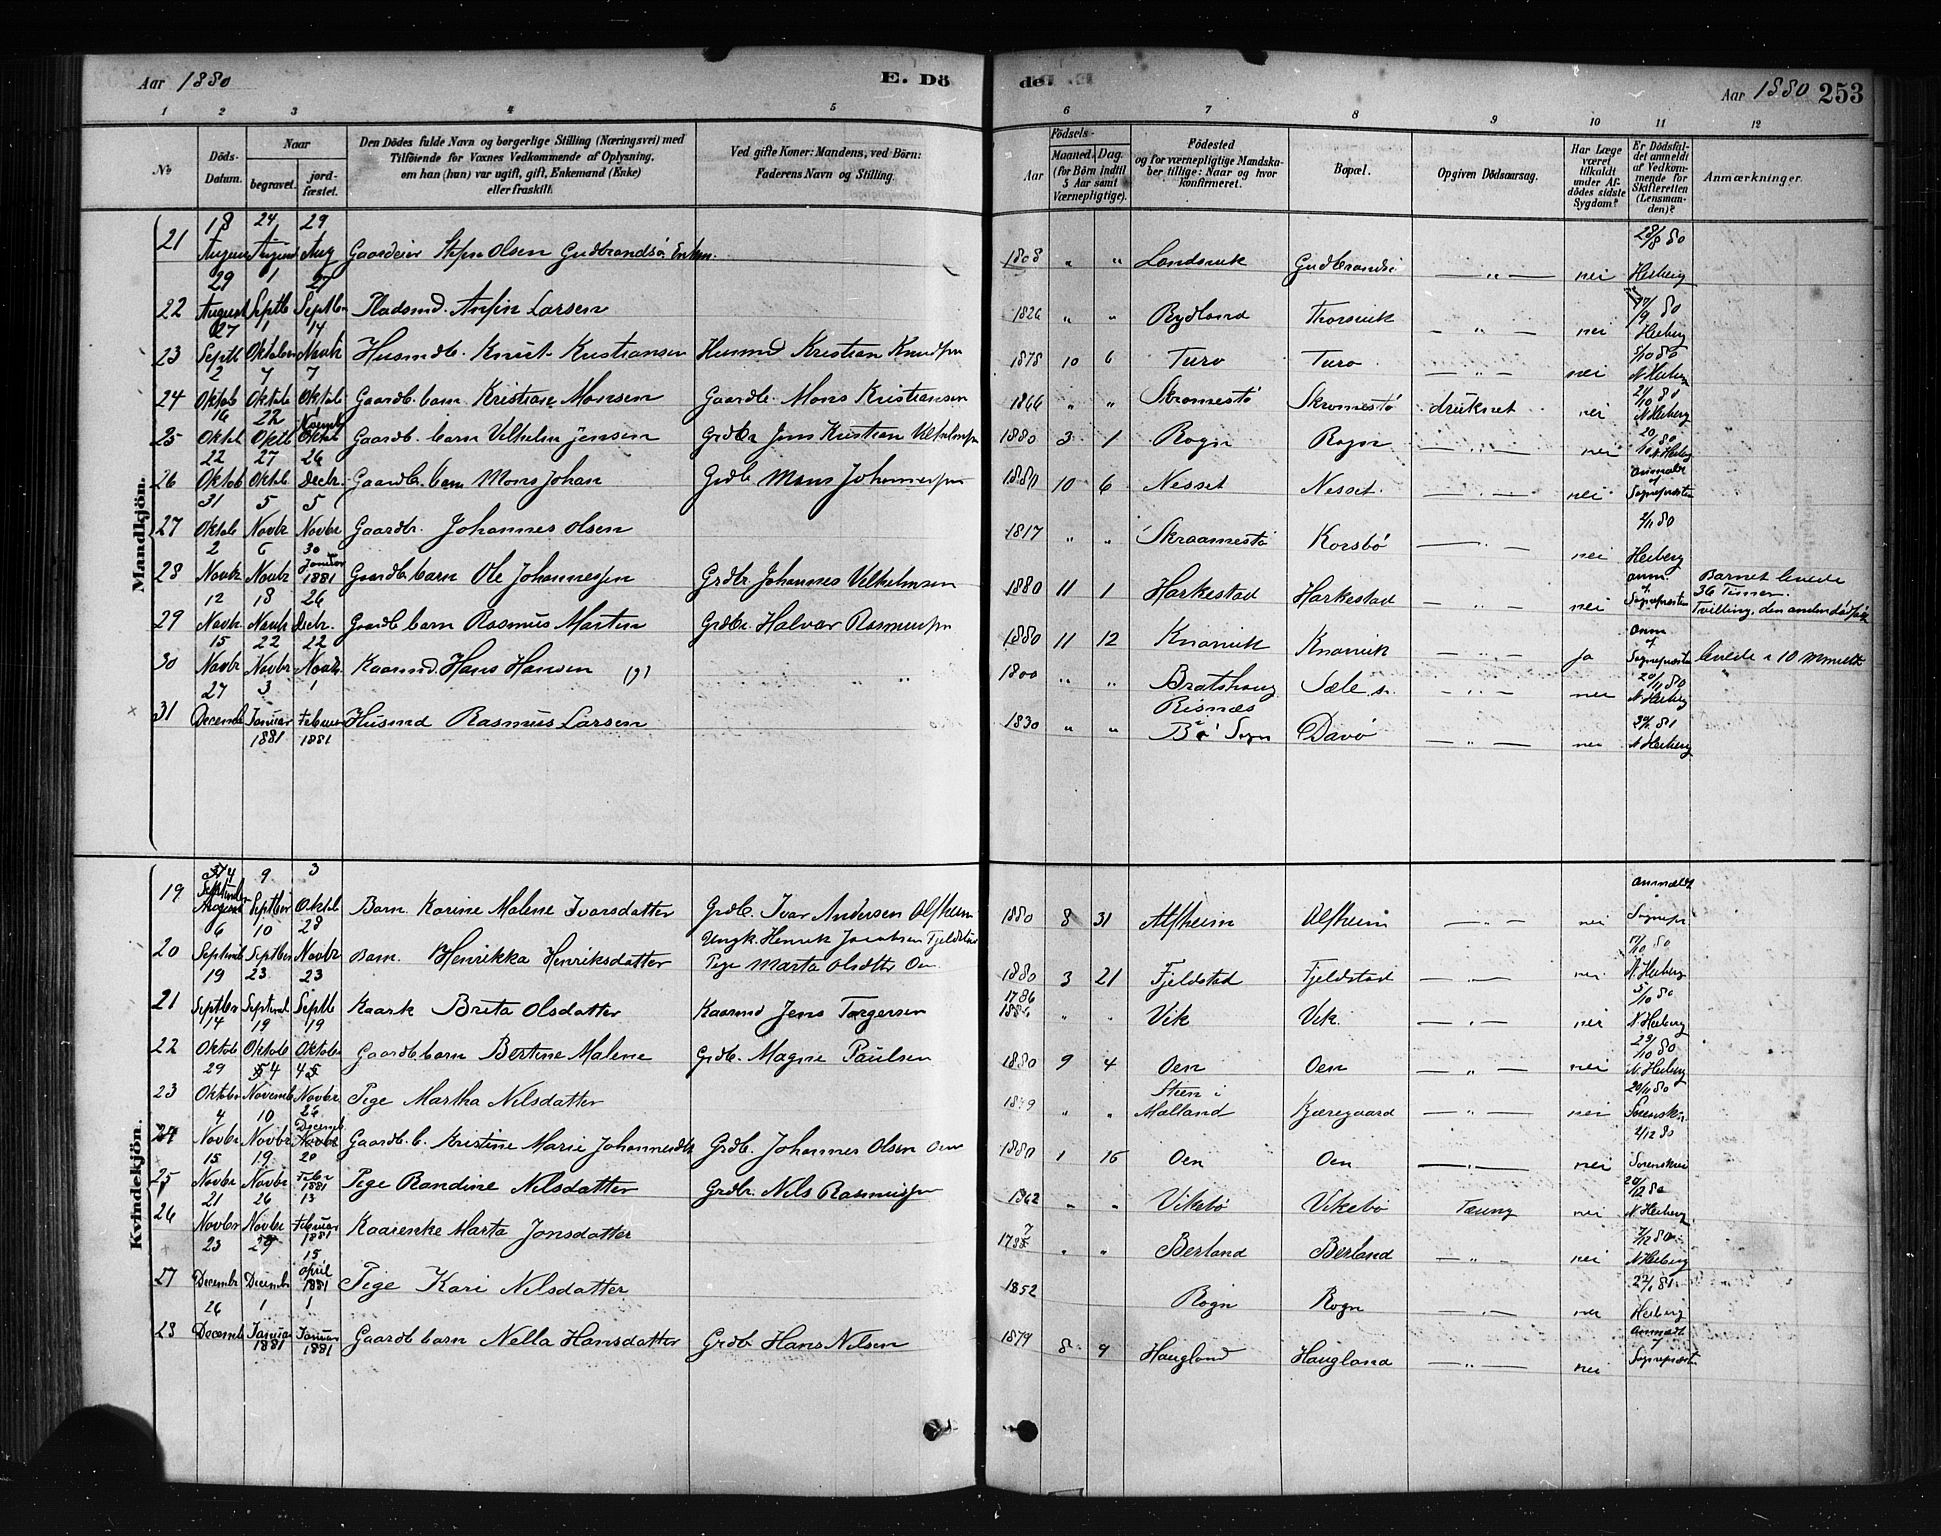 Aar 1880 E. Dö
de. Aar 1880 253
1 2 3 4 5 6 7 8 9 10 11 12
No
Döds-Datum.
Naar
begravet.
jord-fæstet.
Den Dödes fulde Navn og borgerlige Stilling (Næringsvei) med
Tilföiende for Voxnes Vedkommende af Oplysning,
om han (hun) var ugift, gift, Enkemand (Enke)
eller fraskilt.
Ved gifte Koner: Mandens, ved Börn:
Faderens Navn og Stilling.
Födsels-
Aar
Maaned. Dag.
(for Börn indtil
5 Aar samt
Værnepligtige).
Födested
og for værnepligtige Mandska-
ber tillige: Naar og hvor
konfirmeret.
Bopæl.
Opgiven Dödsaarsag.
Har Læge
været
tilkaldt
under Af-
dödes sidste
Sygdom?
Er Dödsfal-
det anmeldt
af Vedkom-
mende for
Skifteretten
(Lensman-
den)?
Anmærkninger.
Mandkjön.
21 18 August 24 August 29 Aug Gaardeier Olsen Gudbrandsö 1808 " " Landsvik — " — nei 28/8 80 Heiberg
22 29 August 1 Septb Septbr Pladsmd. Anfin Larsen 1826 " " Rydland Thorsvik — " — nei Heiberg
23 27 Septb 1 Oktober 14 Novb Husmdb. Knut Kristiansen Husmd Kristian 1878 10 6 Turo Turo — " — nei N Heiberg
24 2 Oktob 7 Oktob 7 Oktob Gaardb. barn Kristian Monsen Gaardb. Mons Kristiansen 1866 " " Skromestö Skromestö druknet nei N Heiberg
25 16 Oktb 22 Oktb Gaardb. barn Vilhelm Jensen Grdbr Jens Kristian 1880 3 1 Rogn Rogn — " — nei N. Heiberg
26 22 Oktob 27 Oktb 26 Decbr. Gaardb. barn Mons Johan Grdb. Mons 10 6 Nesset Nesset. — " — nei Sognepræsten
27 31 Oktob 5 Novbr 5 Novbr Gaardbr. Johannes Olsen 1817 " " Skraamestö Korsbö nei 2/11 80 Heiberg
28 2 Novbr 6 Novbr 30 Januar 1881 Gaardb. barn Ole Johannessen Grdbr. Johannes Vilhelmsen 1880 11 1 Harkestad Harkestad — " — nei anm. Sognepræsten Barnet levede
36 Timer.
Tvilling, den anden
29 12 Novbr 18 Novb 26 Decbr. Gaardb barn Rasmus Martin Grdbr. Halvar 1880 11 12 Knarvik Knarvik — " — ja anm Sognepræsten levede i 10
30 15 Novbr 22 Novbr 22 Novbr. Kaarmd. Hans Hansen (g) 1800 " " Bratshaug Sæle — " — nei 20/11 80 N. Heiberg
31 27 Decemb 3 Januar 1881 1 Februar 1881 Husmd Rasmus Larsen 1830 " " Risnæs Sogn Davö — " — nei N Heiberg
Kvindekjön.
19 September 9 Septbr 3 Oktob Barn Karine Malene Ivarsdatter Grdb. Ivar Andersen Alfheim 1880 8 31 Alfheim Alfheim — " — nei anmeldt Sognepr.
20 6 Septemb 10 Septbr 28 Novbr Barn. Henrikka Henriksdatter Ungk. Henrik Jacobsen Pige Marta 1880 3 21 Fjeldstad Fjeldstad — " — nei N. Heiberg
21 19 Septbr 23 Septemb 23 Septb Kaark Brita Olsdatter Kaarmd Jens Torgersen 1786 " " Vik Vik. — " — nei 5/10 80 N Heiberg
22 14 Oktob 19 Oktob 19 Oktober Gaardb barn Bertine Malene Grdb. Magne Paulsen 1880 9 4 Oen Oen — " — nei N. Heiberg
23 29 Oktober 4 Novemb Novbr Pige Martha Nilsdatter " " Steen i Mælland Kjæregaard — " — nei
24 4 Novbr 10 Novbr 26 Decemb. Gaardb. b. Kristine Marie Grdb. Johannes Olsen Oen 1880 1 16 Oen Oen — " — nei 2/12 80
25 15 Novbr 19 Novbr 20 Febr 1881 Pige Randine Nilsdatter Grdbr. Nils 1862 " " Vikebö Vikebö Tæring nei N Heiberg
26 21 Novbr 26 Novbr 13 Februar 1881 Kaarenke Marta Jonsdatter " " Berland Berland — " — nei 7/12 80 N Heiberg
27 23 Decembr Decembr 15 April 1881 Pige Kari Nilsdatter 1852 Rogn Rogn — " — nei Heiberg
28 26 Decemb 1 Januar 1881 1 Januar 1881 Gaardb barn Nella Hansdatter Grdb. Hans Nilsen 1879 8 9 Haugland Haugland — " — nei Sognepræsten